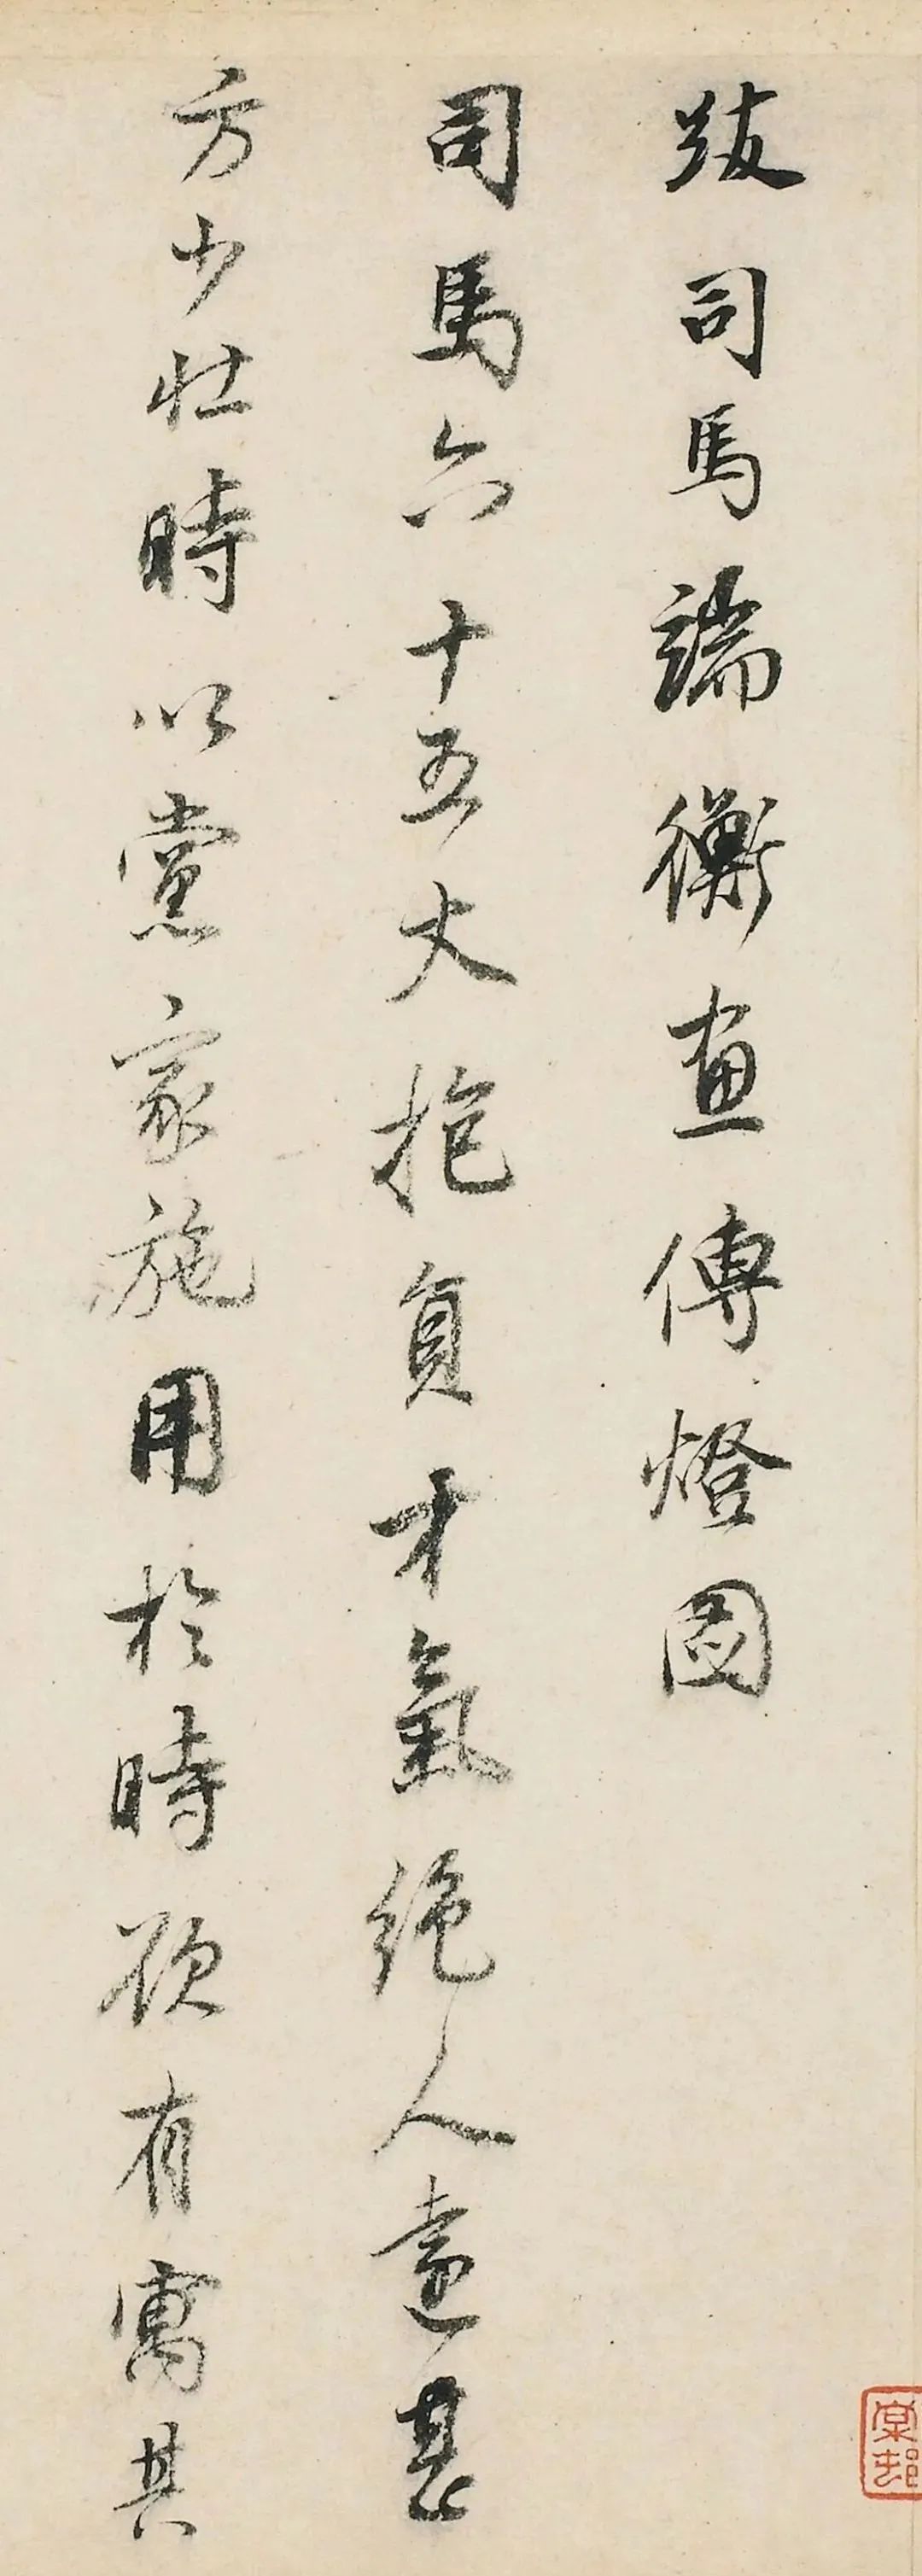 跋司馬端衡畫傳燈圖
司馬六十五丈抱負才氣絕人遠甚
方少壯時以黨家施用於時欲有寓其
棠邨